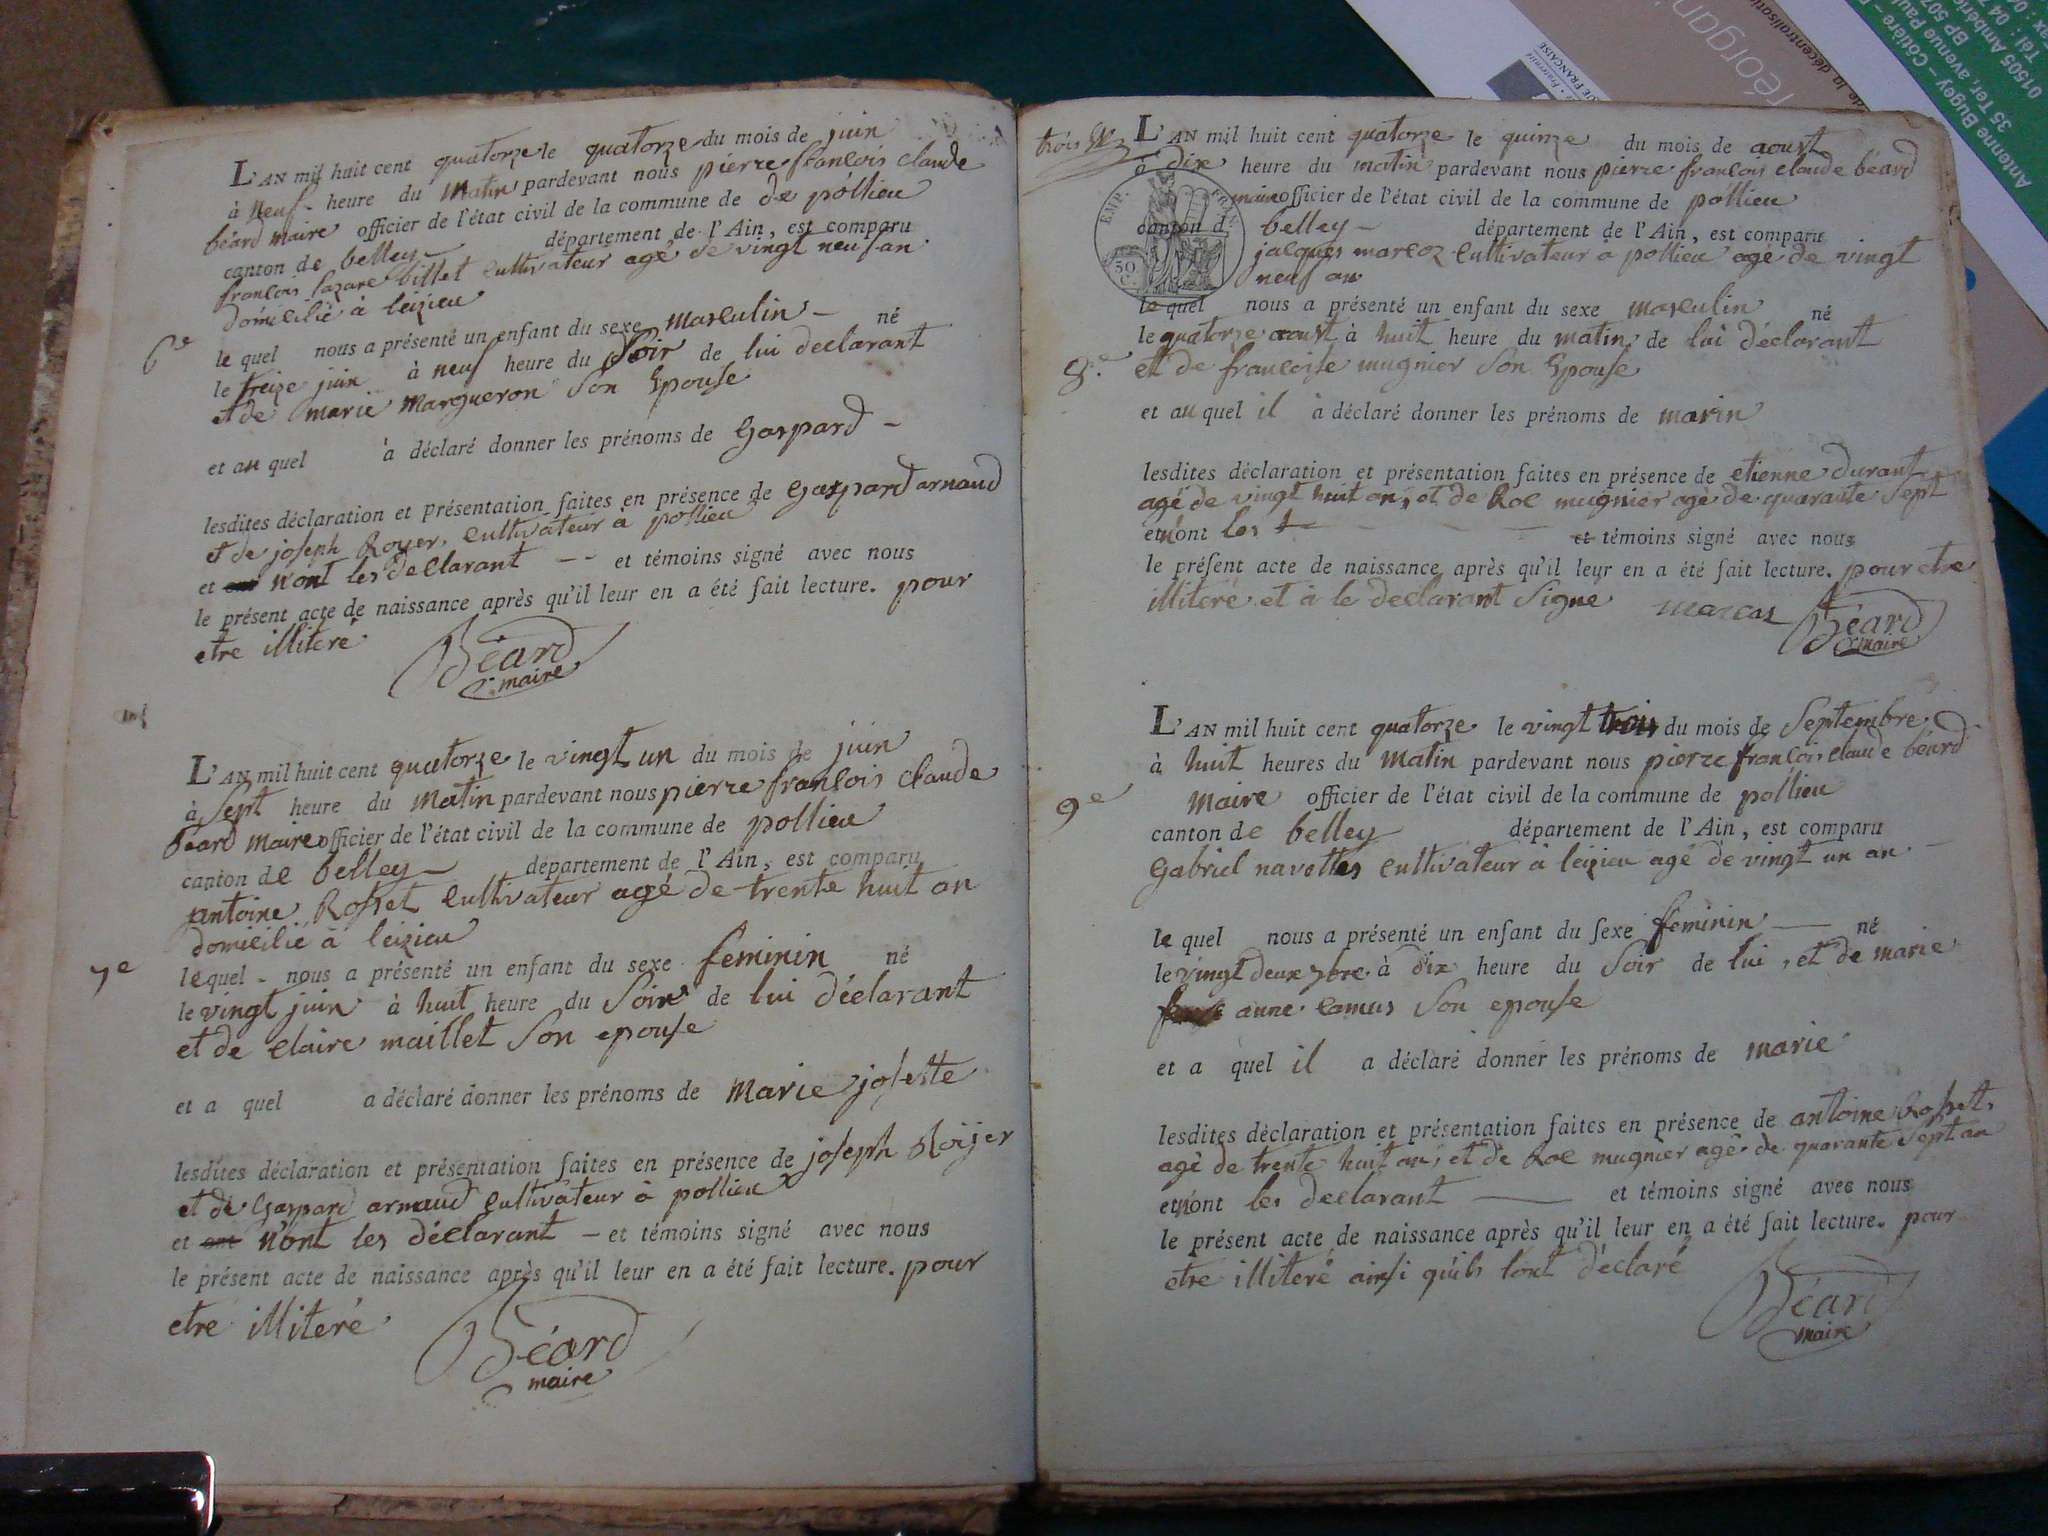 L'AN mil huit cent quatorze le quatorze du mois de juin
à neuf heure du matin pardevant nous pierre françois claude
béard maire officier de l'état civil de la commune de de pollieu
canton de belley département de l'Ain, est comparu
françois lazare billet cultivateur agé de vingt neuf an
domicilié à leizieu
6e
le quel nous a présenté un enfant du sexe masculin né
le treize juin à neuf heure du soir de lui déclarant
et de marie margueron son epouse
et au quel à déclaré donner les prénoms de gaspard
lesdites déclaration et présentation faites en présence de gaspard arnaud
et de joseph Royer, cultivateur à pollieu
et ont n'ont les declarant et témoins signé avec nous
le présent acte de naissance après qu'il leur en a été fait lecture. pour
etre illiteré
Béard
maire
L'AN mil huit cent quatorze le vingt un du mois de juin
à sept heure du matin pardevant nous pierre françois claude
béard maire officier de l'état civil de la commune de pollieu
canton de belley département de l'Ain, est comparu
antoine Rosset cultivateur agé de trente huit an
domicilié à leizieu
7e
lequel nous a présenté un enfant du sexe feminin né
le vingt juin à huit heure du soir de lui déclarant
et de claire maillet son epouse
et a quel a déclaré donner les prénoms de marie josette
lesdites déclaration et présentation faites en présence de joseph Roijer
et de gaspard arnaud cultivateur à pollieu
et ont n'ont les déclarant et témoins signé avec nous
le présent acte de naissance après qu'il leur en a été fait lecture. pour
etre illiteré
Béard
maire
trois
L'AN mil huit cent quatorze le quinze du mois de aoust
à dix heure du matin pardevant nous pierre françois claude béard
maire officier de l'état civil de la commune de pollieu
EMP. FRAN.
50 C.
canton d belley département de l'Ain, est comparu
jacques marcoz cultivateur à pollieu agé de vingt
neuf an
le quel nous a présenté un enfant du sexe masculin né
le quatorze aoust à huit heure du matin de lui déclarant
8e
et de françoise mugnier son epouse
et au quel il à déclaré donner les prénoms de marin
lesdites déclaration et présentation faites en présence de etienne durant
agé de vingt huit an, et de Roc mugnier agé de quarante sept
et n'ont les et témoins signé avec nous
le présent acte de naissance après qu'il leur en a été fait lecture. pour etre
illiteré et à le declarant signe marcoz Béard
maire
L'AN mil huit cent quatorze le vingt trois du mois de septembre
à huit heures du matin pardevant nous pierre françois claude béard
9e
maire officier de l'état civil de la commune de pollieu
canton de belley département de l'Ain, est comparu
gabriel navettes cultivateur à leizieu agé de vingt un an
le quel nous a présenté un enfant du sexe feminin né
le vingt deux 7bre à dix heure du soir de lui, et de marie
anne camus son epouse
et a quel il a déclaré donner les prénoms de marie
lesdites déclaration et présentation faites en présence de antoine Rosset
agé de trente huit an, et de Roc mugnier agé de quarante sept an
et n'ont les declarant et témoins signé avec nous
le présent acte de naissance après qu'il leur en a été fait lecture. pour
etre illiteré ainsi qu'ils l'ont déclaré
Béard
maire
réorgani
de la décentralisation
UE FRANÇAISE
Antenne Bugey – Côtière –
35 Ter avenue Paul
BP 507
01505 Ambérie
Tél : 04